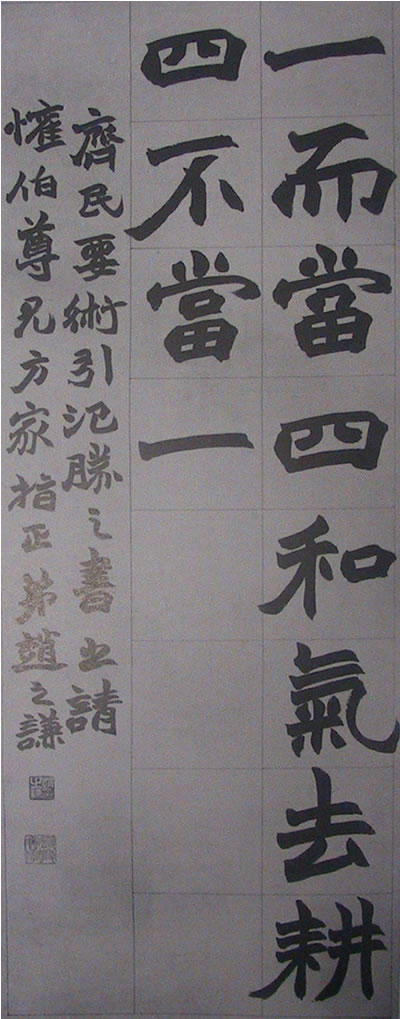 一而當四和氣去耕
四不當一
齊民要術引氾勝之書書之請
懽伯尊兄方家指正弟趙之謙